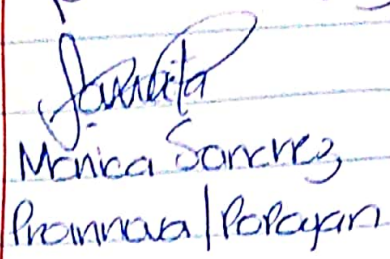 Monica Sanchez
Proinnova | Popayan